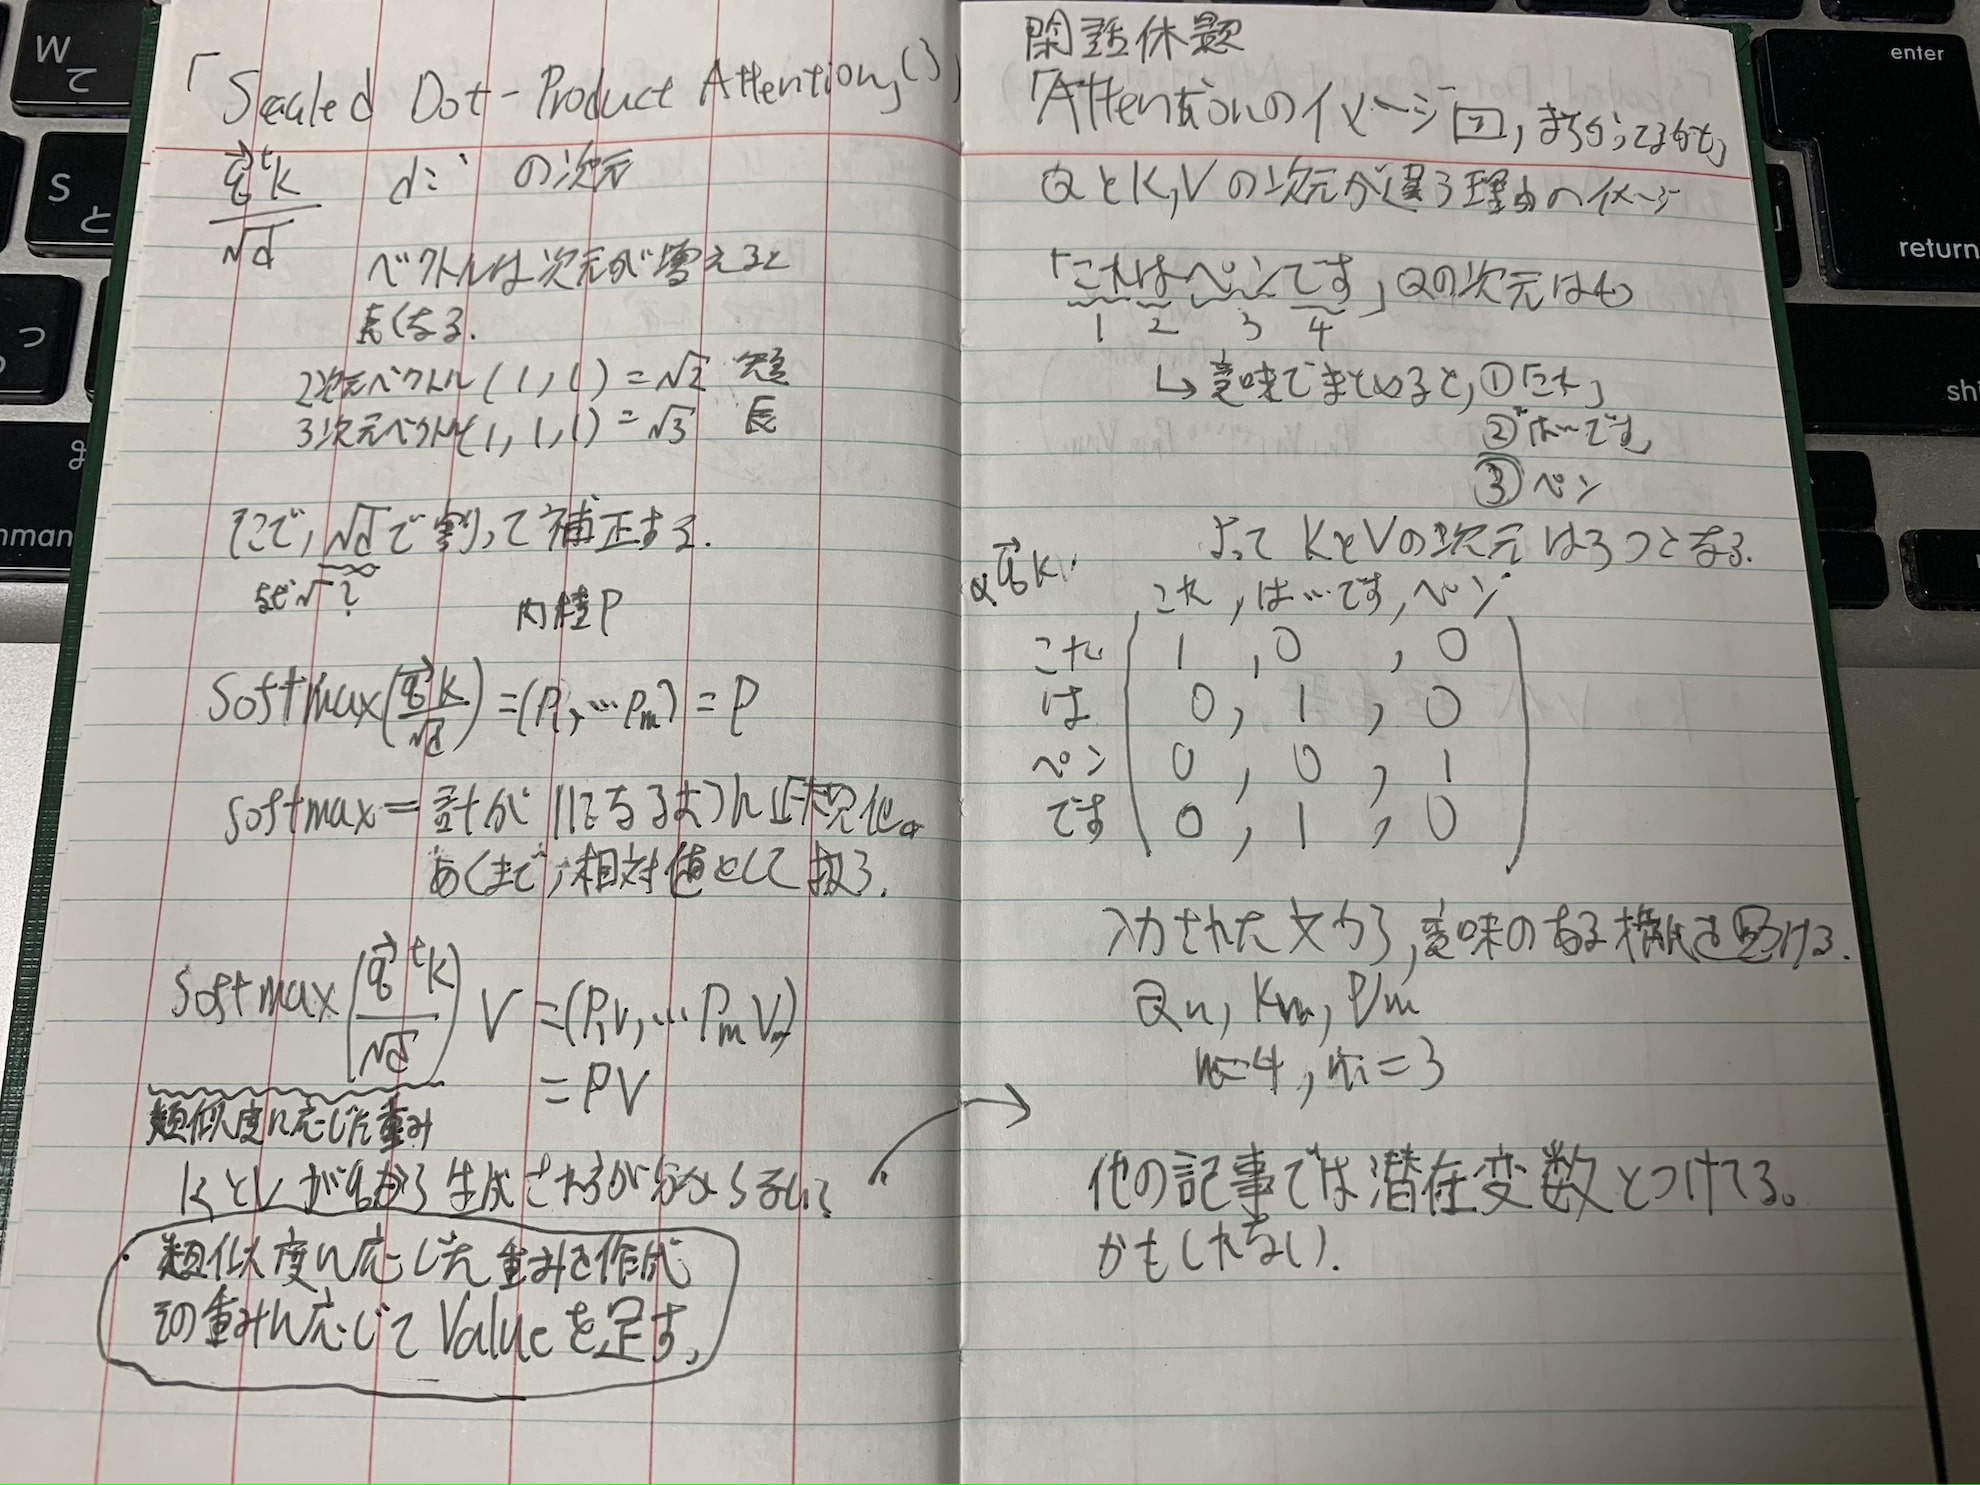 「Scaled Dot-Product Attention」( )
q⃗ᵗk / √d
d: の次元
ベクトルは次元が増えると
長くなる.
2次元ベクトル(1, 1) = √2 短
3次元ベクトル(1, 1, 1) = √3 長
そこで, √dで割って補正する.
なぜ√?
内積P
Softmax(q⃗k/√d) = (P₁, … Pm) = P
softmax = 計が1になるように正規化。
あくまで, 相対値として扱う.
Softmax(q⃗ᵗk/√d) V = (P₁V₁, … PmVm)
= PV
類似度に応じた重み
KとVがqから生成されるが分からない?
類似度に応じた重みを作成
その重みに応じてValueを足す,
閑話休題
「Attentionのイメージ図, まちがってるかも」
QとK,Vの次元が違う理由のイメージ
「これはペンです」Qの次元は4
1 2 3 4
↳ 意味でまとめると, ①「これ」
②「は…です」
③ ペン
よって KとVの次元は3つとなる.
q⃗k
これ, は…です, ペン
これ 1, 0, 0
は 0, 1, 0
ペン 0, 0, 1
です 0, 1, 0
入力された文から, 意味のある を見つける.
Qn, Km, Vm
n=4, m=3
他の記事では潜在変数とつけてる。
かもしれない.
W
て
S
と
っ
enter
return
shi
mman